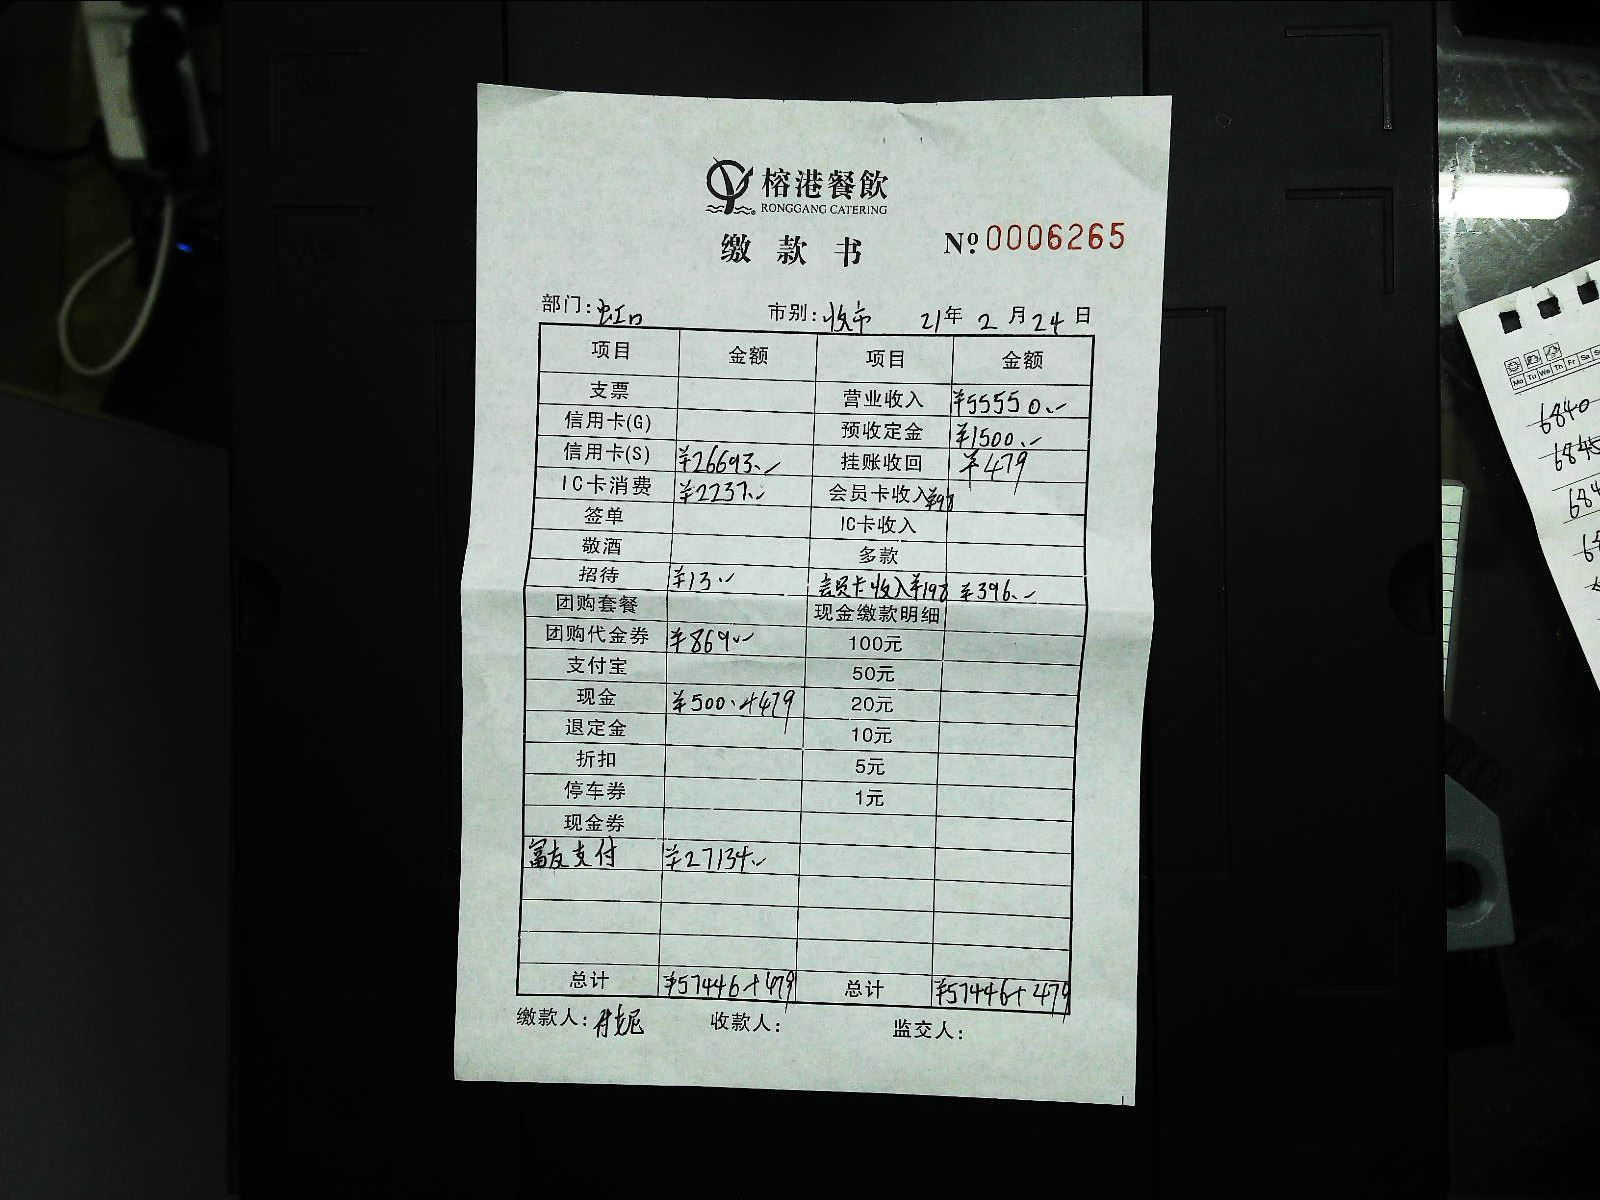 榕港餐飲
RONGGANG CATERING
缴款书 Nº 0006265
部门:虹口 市别:收市 21年2月24日
项目 金额 项目 金额
支票 营业收入 ¥55550.-
信用卡(G) 预收定金 ¥1500.-
信用卡(S) ¥26693.- 挂账收回 ¥479
IC卡消费 ¥2237.- 会员卡收入¥98
签单 IC卡收入
敬酒 多款
招待 ¥13.- 会员卡收入¥198 ¥396.-
团购套餐 现金缴款明细
团购代金券 ¥869.- 100元
支付宝 50元
现金 ¥500.+479 20元
退定金 10元
折扣 5元
停车券 1元
现金券
富友支付 ¥27134.-
总计 ¥57446+479 总计 ¥57446+479
缴款人: 收款人: 监交人:
A5
Mo Tu We Th Fr Sa
6840
6845
684